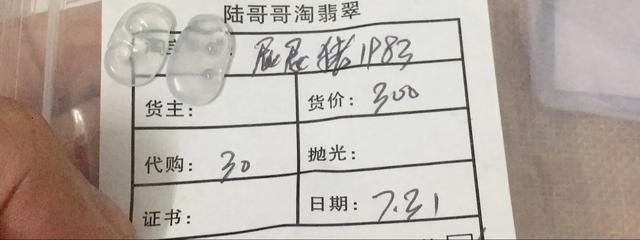 陆哥哥淘翡翠
屁屁猪1983
货主： 货价：300
代购：30 抛光：
证书： 日期：7.31